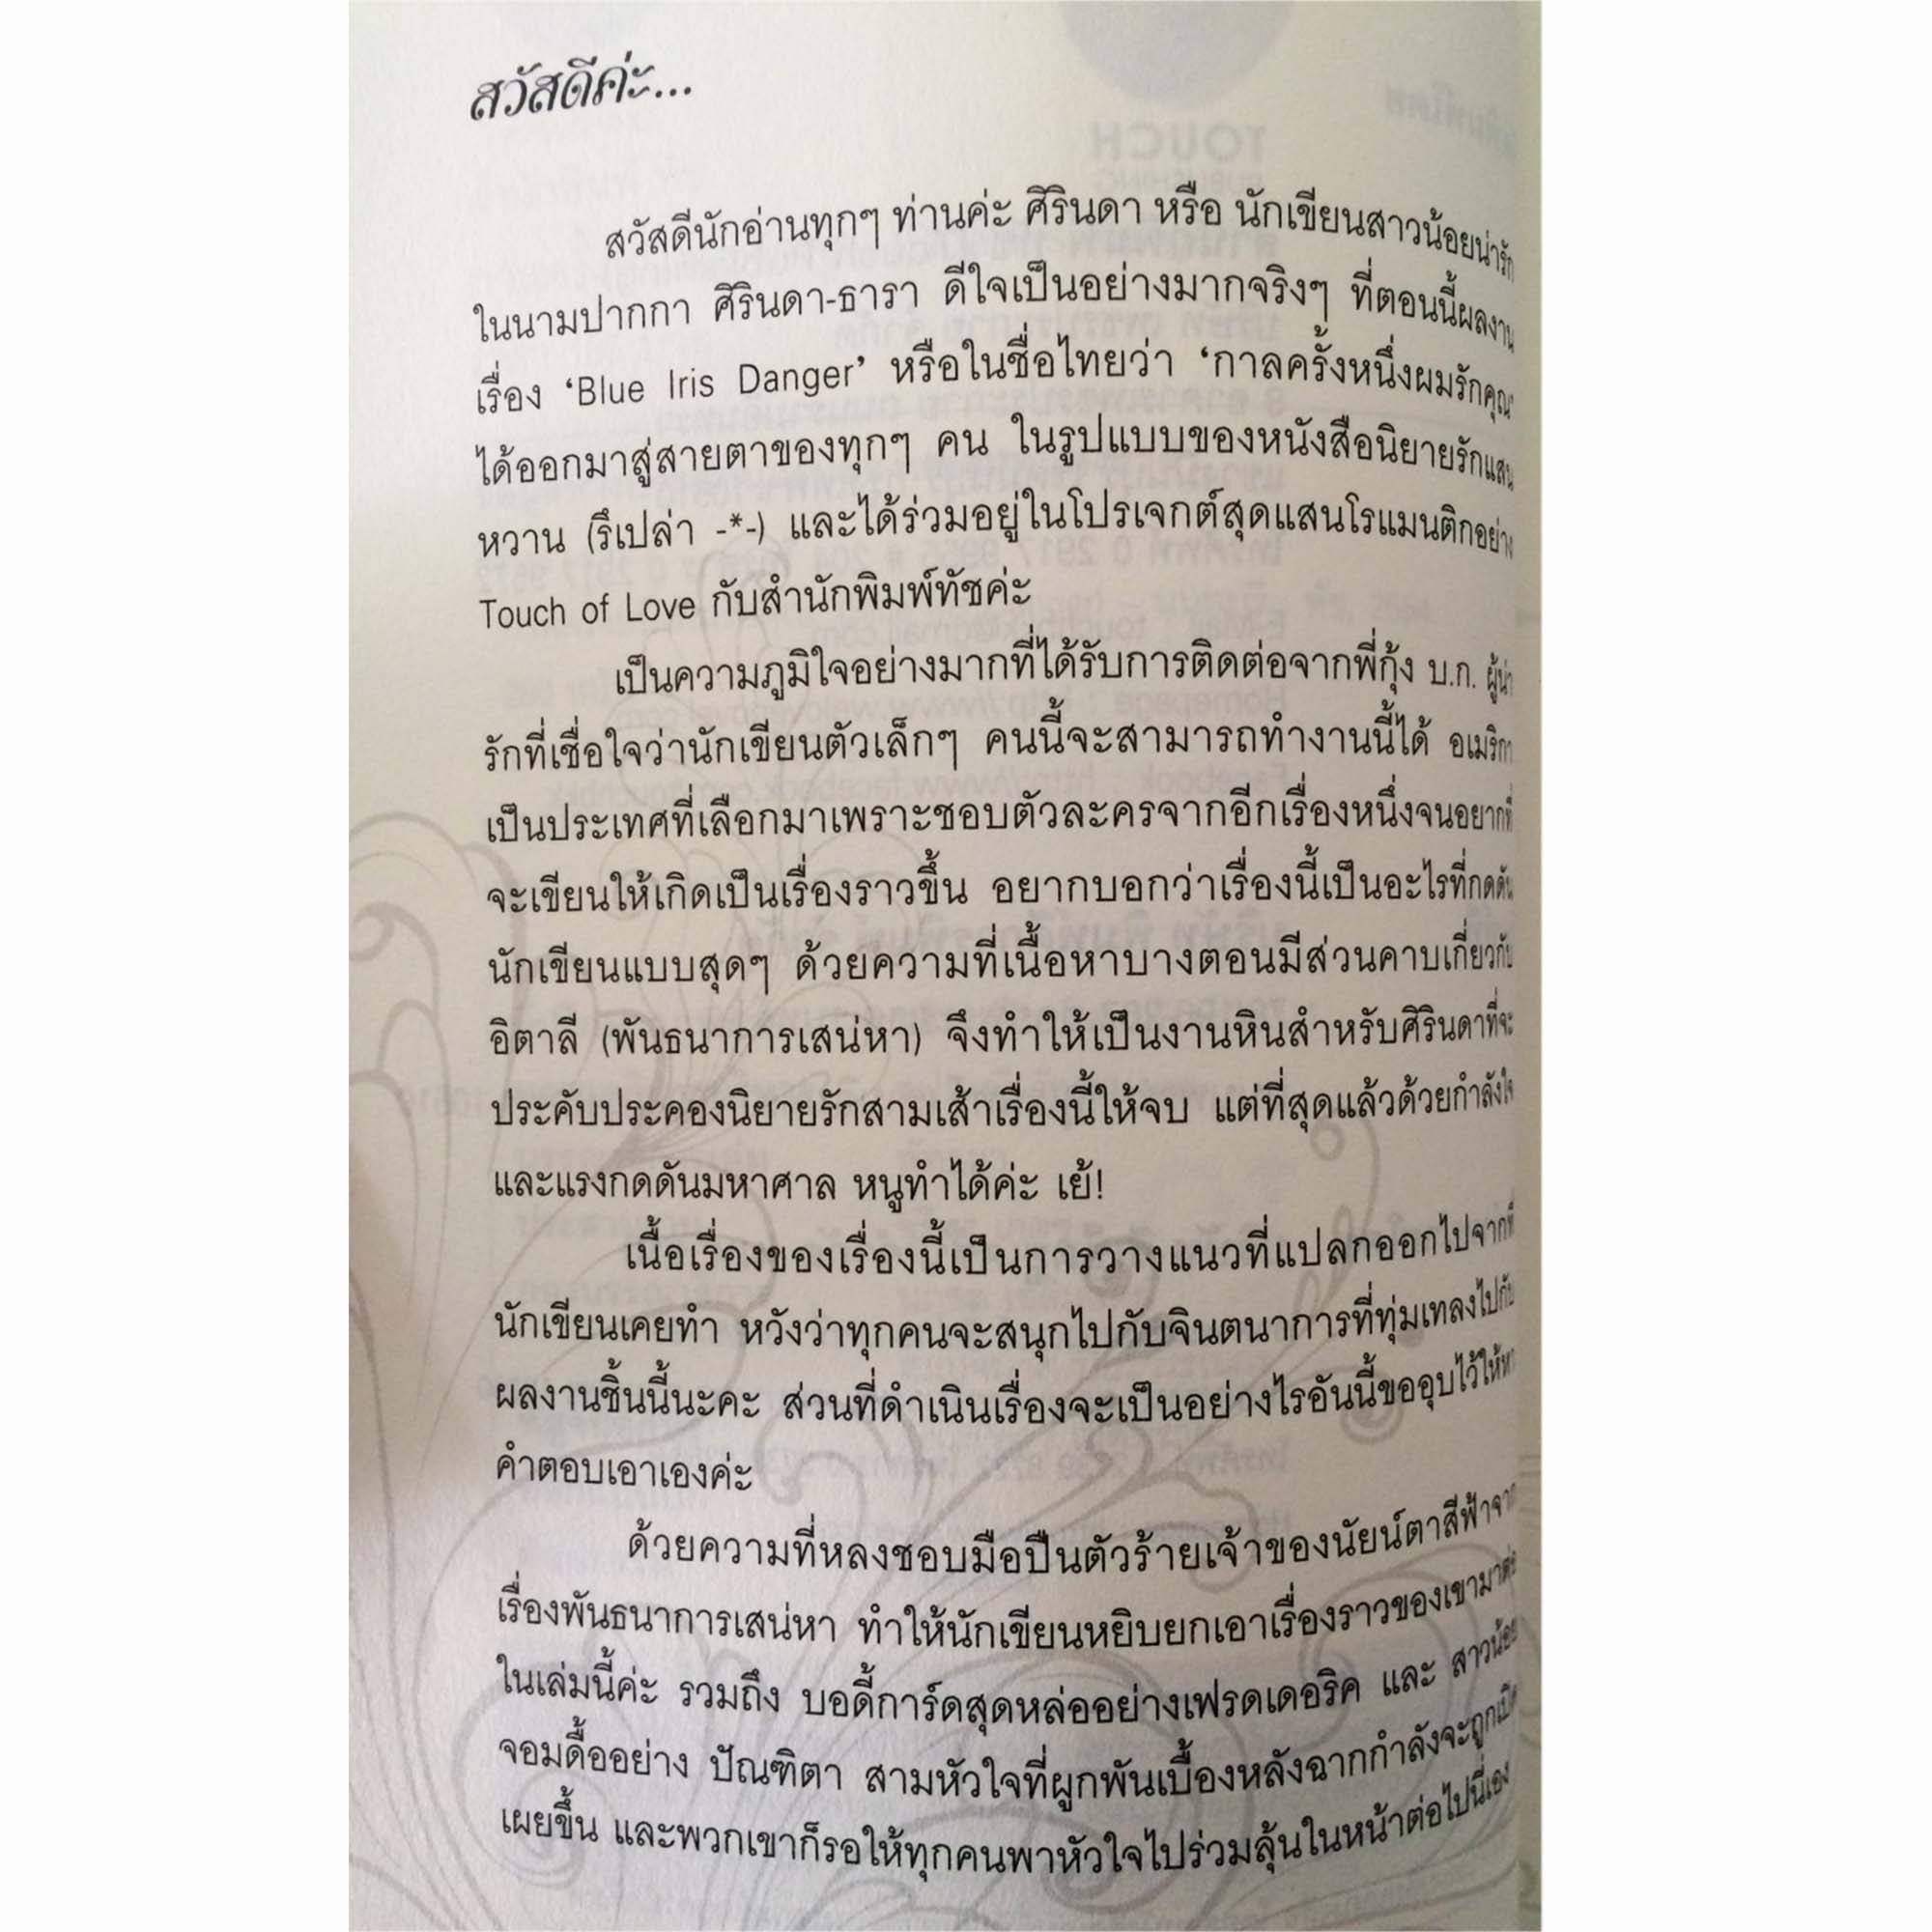 สวัสดีค่ะ...
สวัสดีนักอ่านทุกๆ ท่านค่ะ ศิรินดา หรือ นักเขียนสาวน้อยน่ารัก
ในนามปากกา ศิรินดา-ธารา ดีใจเป็นอย่างมากจริงๆ ที่ตอนนี้ผลงาน
เรื่อง ‘Blue Iris Danger’ หรือในชื่อไทยว่า ‘กาลครั้งหนึ่งผมรักคุณ’
ได้ออกมาสู่สายตาของทุกๆ คน ในรูปแบบของหนังสือนิยายรักแสน
หวาน (รึเปล่า -*-) และได้ร่วมอยู่ในโปรเจกต์สุดแสนโรแมนติกอย่าง
Touch of Love กับสำนักพิมพ์ทัชค่ะ
เป็นความภูมิใจอย่างมากที่ได้รับการติดต่อจากพี่กุ้ง บ.ก. ผู้น่า
รักที่เชื่อใจว่านักเขียนตัวเล็กๆ คนนี้จะสามารถทำงานนี้ได้ อเมริกา
เป็นประเทศที่เลือกมาเพราะชอบตัวละครจากอีกเรื่องหนึ่งจนอยากที่
จะเขียนให้เกิดเป็นเรื่องราวขึ้น อยากบอกว่าเรื่องนี้เป็นอะไรที่กดดัน
นักเขียนแบบสุดๆ ด้วยความที่เนื้อหาบางตอนมีส่วนคาบเกี่ยวกับ
อิตาลี (พันธนาการเสน่หา) จึงทำให้เป็นงานหินสำหรับศิรินดาที่จะ
ประคับประคองนิยายรักสามเส้าเรื่องนี้ให้จบ แต่ที่สุดแล้วด้วยกำลังใจ
และแรงกดดันมหาศาล หนูทำได้ค่ะ เย้!
เนื้อเรื่องของเรื่องนี้เป็นการวางแนวที่แปลกออกไปจากที่
นักเขียนเคยทำ หวังว่าทุกคนจะสนุกไปกับจินตนาการที่ทุ่มเทลงไปกับ
ผลงานชิ้นนี้นะคะ ส่วนที่ดำเนินเรื่องจะเป็นอย่างไรอันนี้ขออุบไว้ให้หา
คำตอบเอาเองค่ะ
ด้วยความที่หลงชอบมือปืนตัวร้ายเจ้าของนัยน์ตาสีฟ้าจาก
เรื่องพันธนาการเสน่หา ทำให้นักเขียนหยิบยกเอาเรื่องราวของเขามา
ในเล่มนี้ค่ะ รวมถึง บอดี้การ์ดสุดหล่ออย่างเฟรดเดอริค และ สาวน้อย
จอมดื้ออย่าง ปัณฑิตา สามหัวใจที่ผูกพันเบื้องหลังฉากกำลังจะถูกเปิด
เผยขึ้น และพวกเขาก็รอให้ทุกคนพาหัวใจไปร่วมลุ้นในหน้าต่อไปนี่เอง